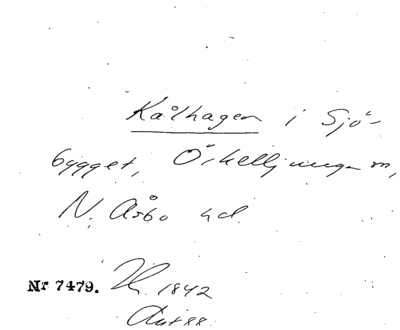 Kålhagen i Sjö-
bygget, Örkelljunga sn,
N. Åsbo hd.
Nr 7479. 1842